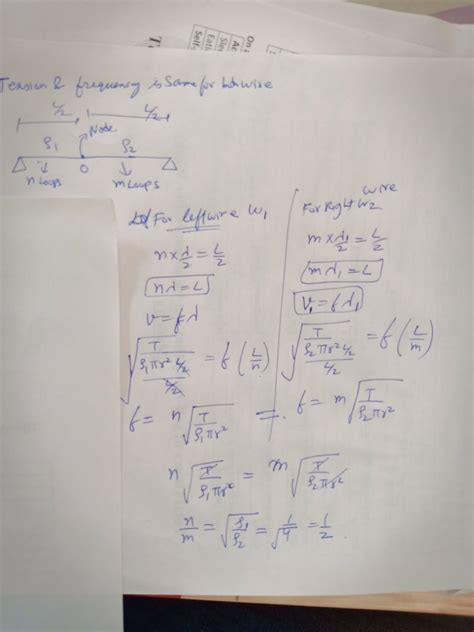 Tension & frequency is Same for both wire
L/2 L/2
Node
ρ1 ρ2
n Loops O m Loops
For left wire W1
n × λ/2 = L/2
nλ = L
v = fλ
√(T / (ρ1πr² L/2 / L/2)) = f (L/n)
f = n √(T / ρ1πr²) =
wire
For Right W2
m × λ1/2 = L/2
mλ1 = L
V1 = fλ1
√(T / (ρ2πr² L/2 / L/2)) = f (L/m)
f = m √(T / ρ2πr²)
n √(T / ρ1πr²) = m √(T / ρ2πr²)
n/m = √(ρ1/ρ2) = √(1/4) = 1/2